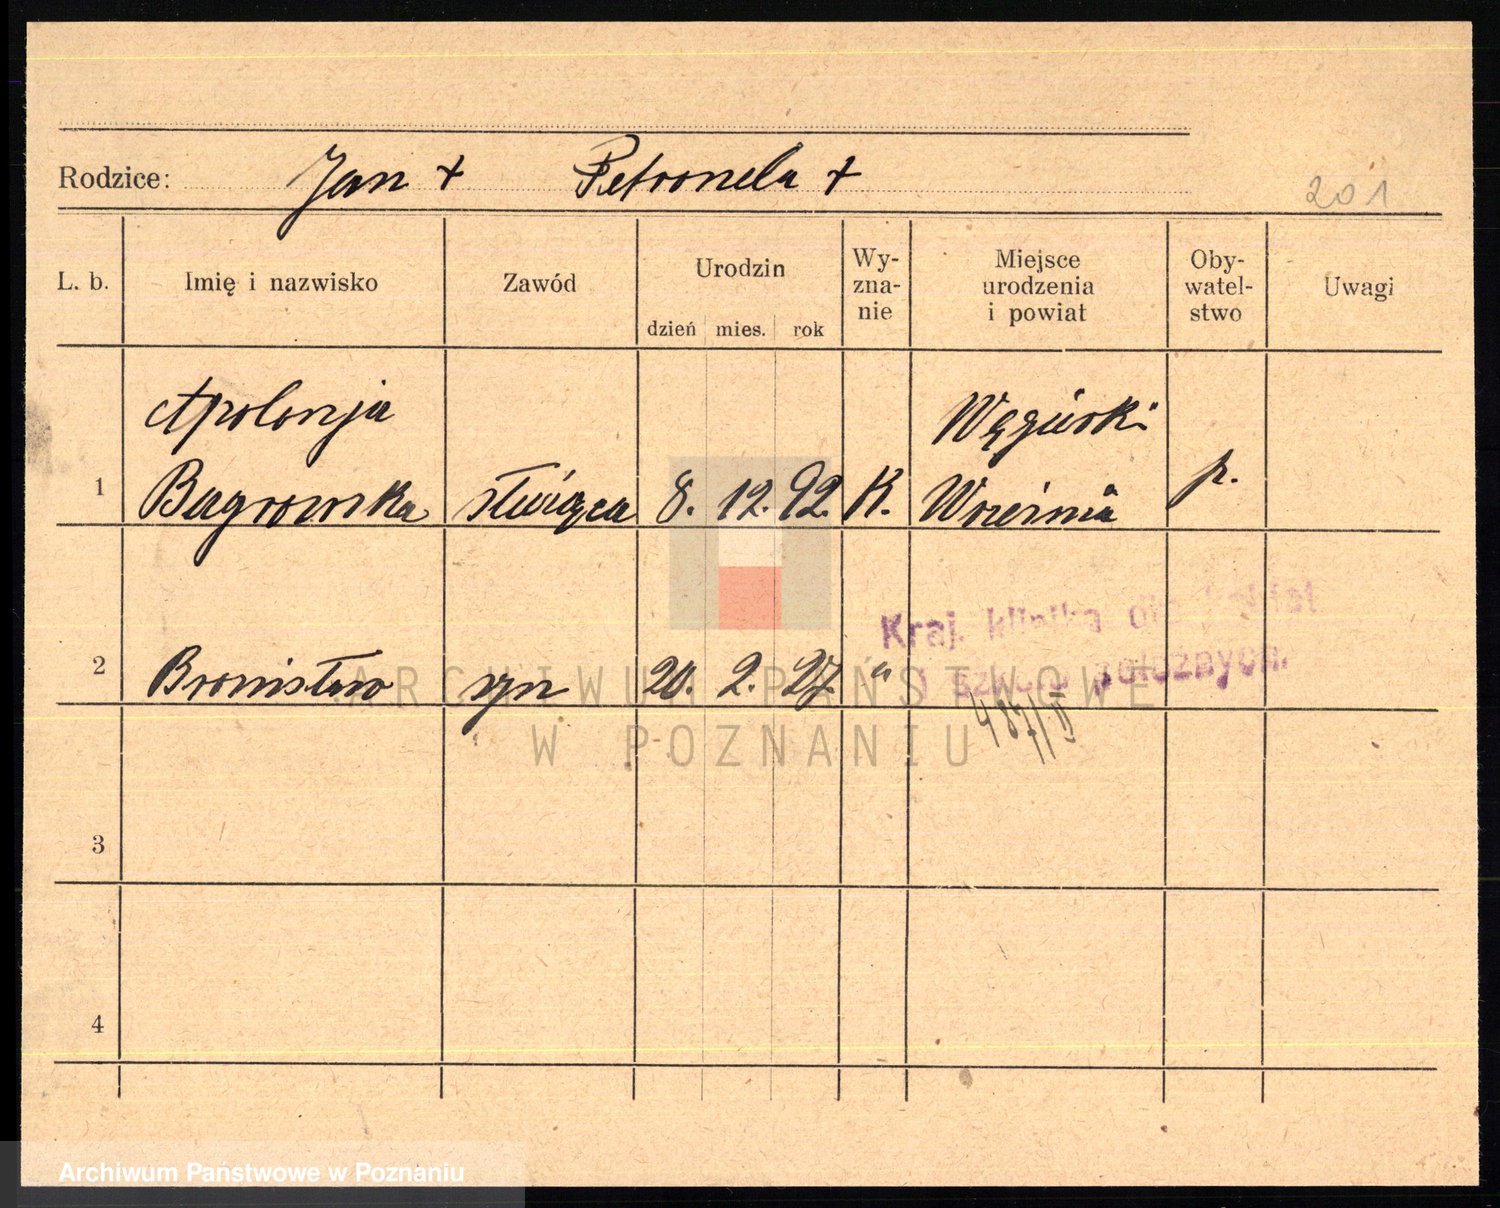 Rodzice: Jan + Petronela +
201
L. b. Imię i nazwisko Zawód Urodzin dzień mies. rok Wy-zna-nie Miejsce urodzenia i powiat Oby-watel-stwo Uwagi
Apolonja Węgierki
1 Bagrowska służąca 8. 12. 92. K. Września p.
Kraj. klinika dla kobiet
2 Bronisław syn 20. 2. 27. " i szkoła położnych.
ARCHIWUM PAŃSTWOWE
W POZNANIU
3
4
Archiwum Państwowe w Poznaniu